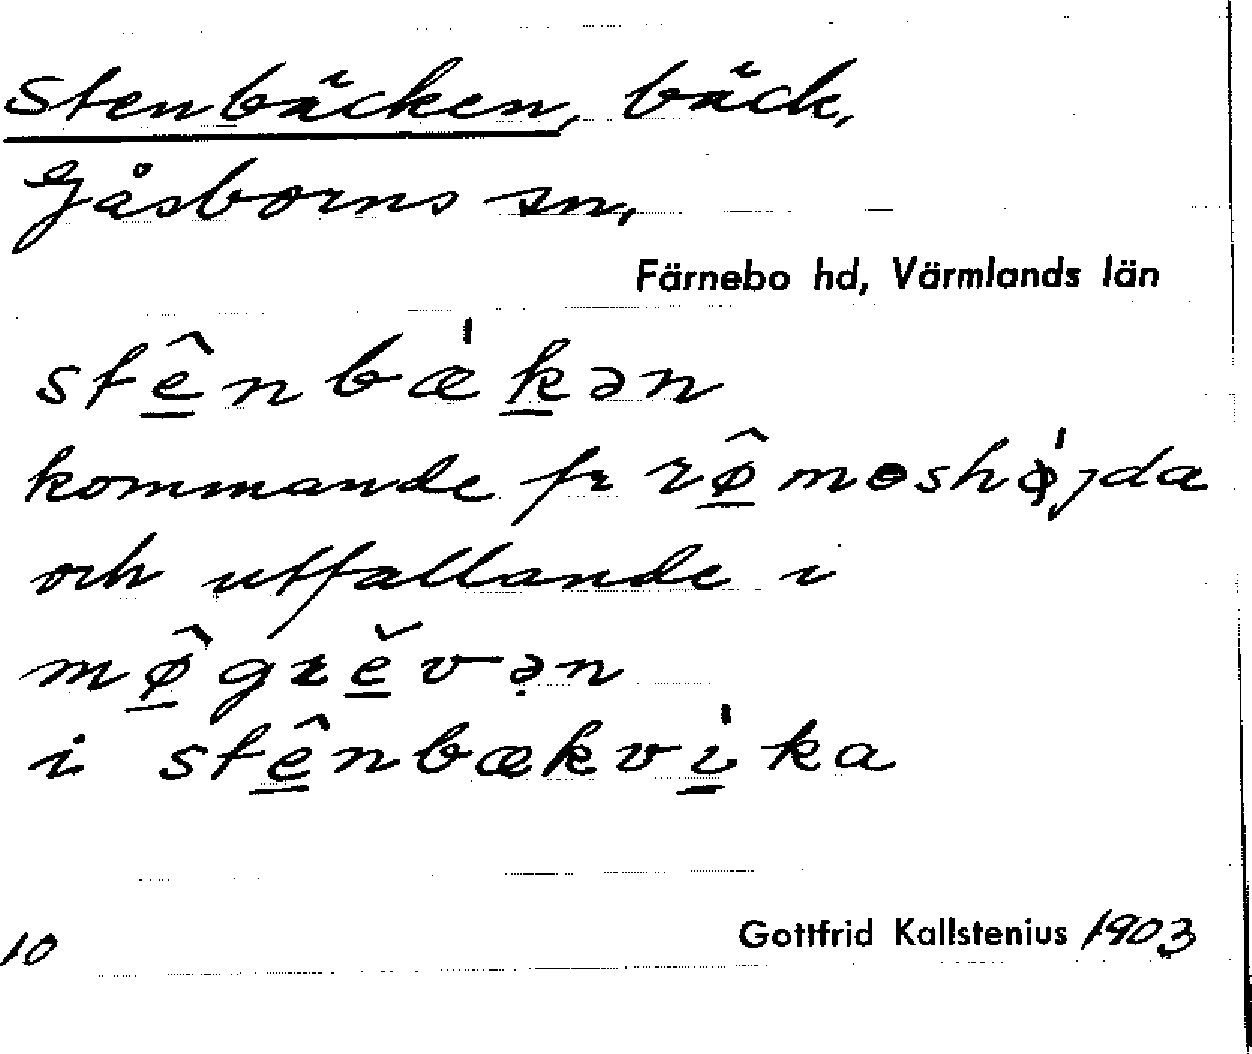 Stenbäcken, bäck,
Gåsborns sn,
Färnebo hd, Värmlands län
stê̱nbæ̍ḵən
kommande fr rø̱̂mɵshø̍jda
och utfallande i
mø̱̂grě̱vən
i stê̱nbækvi̱̍ka
10 Gottfrid Kallstenius 1903